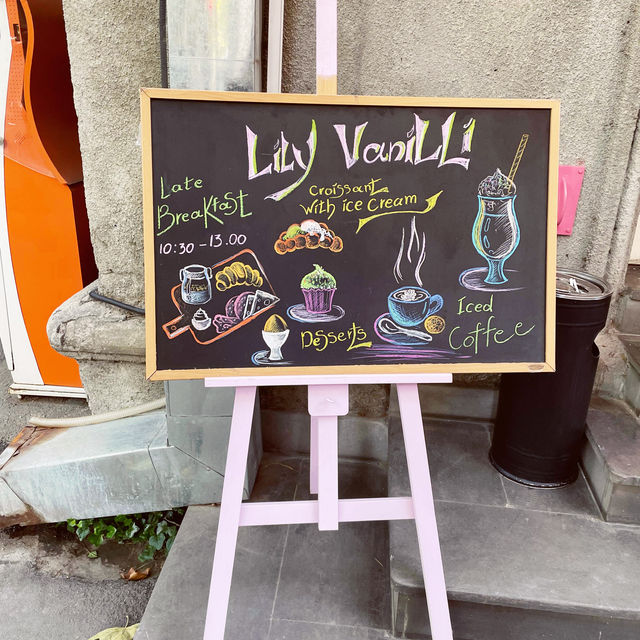 Lily VaniLLi
Late
BreaKfaSt
10:30 - 13.00
Croissant
With ice Cream
Desserts
Iced
Coffee